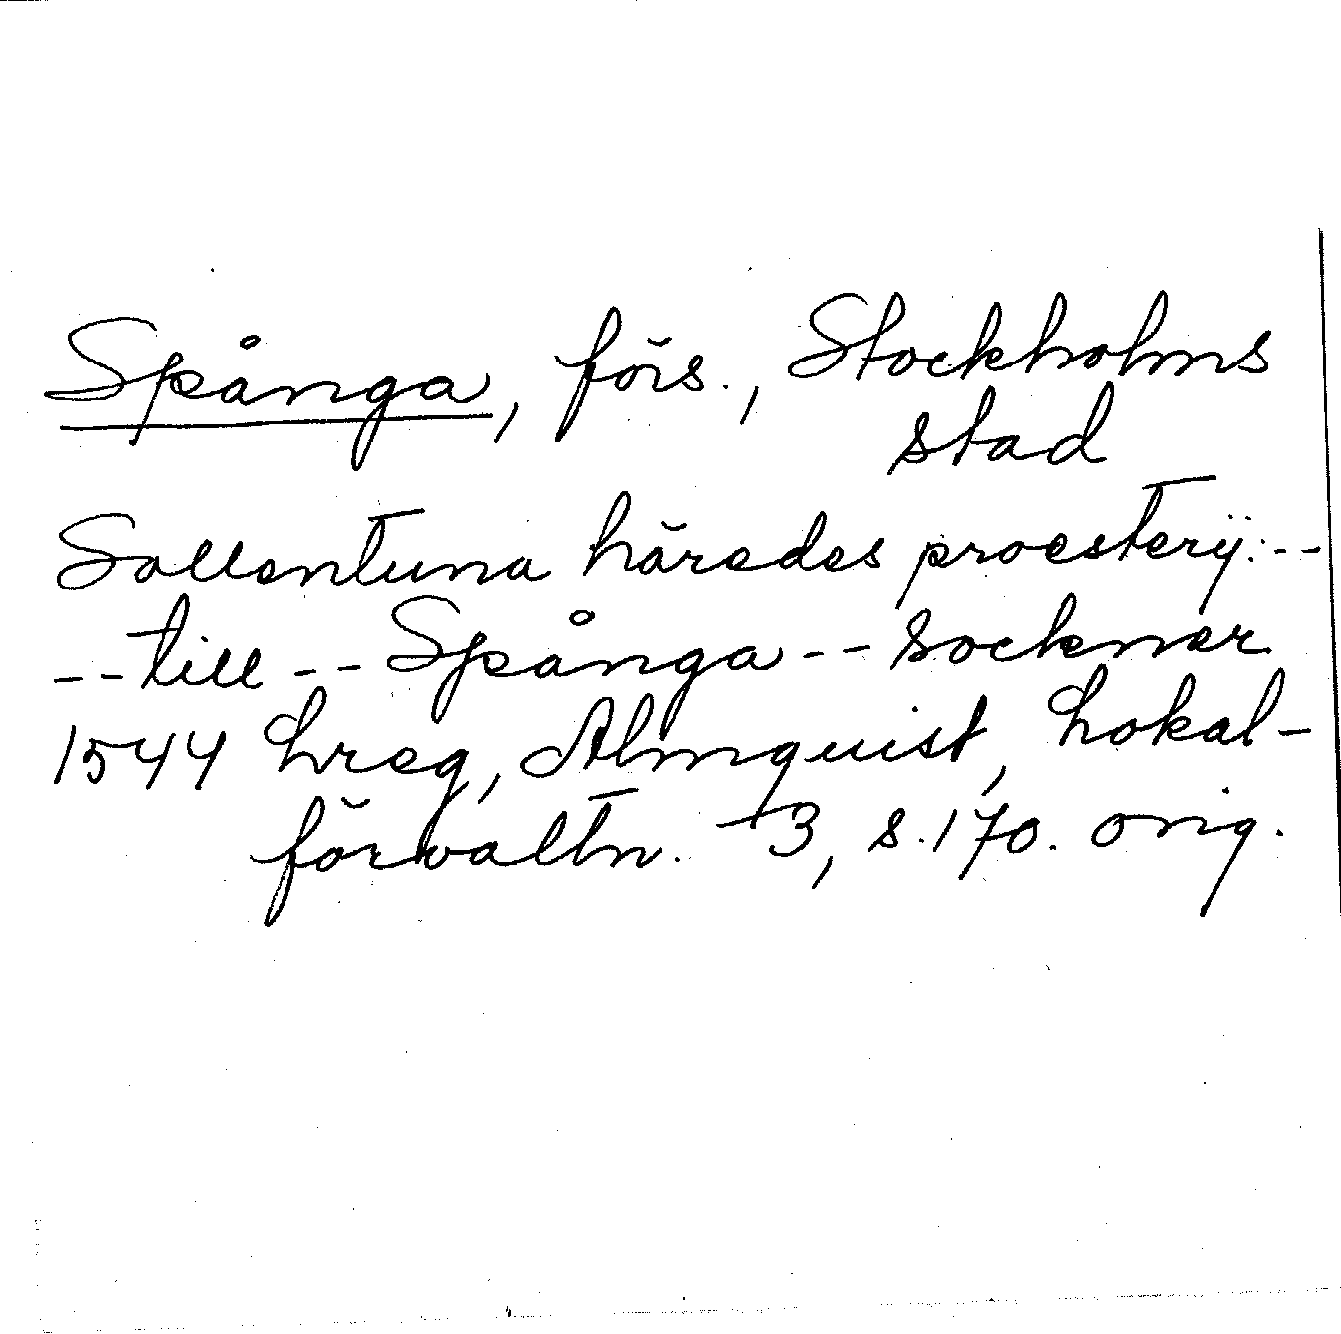 Spånga, förs., Stockholms
stad
Sollentuna häredes proesterÿ: --
-- till -- Spånga -- socknar
1544 hreg, Almquist, Lokal-
förvaltn. 3, s. 170. orig.